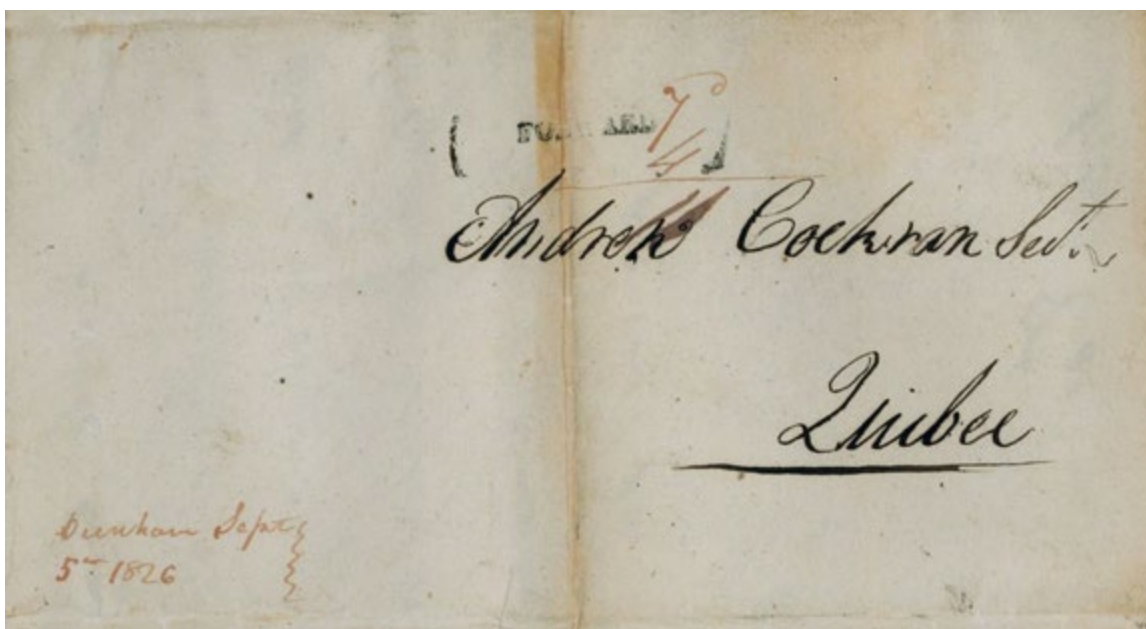 7d
4
Andrew Cochran Sect.
Quibec
Dunham Sept
5th 1826